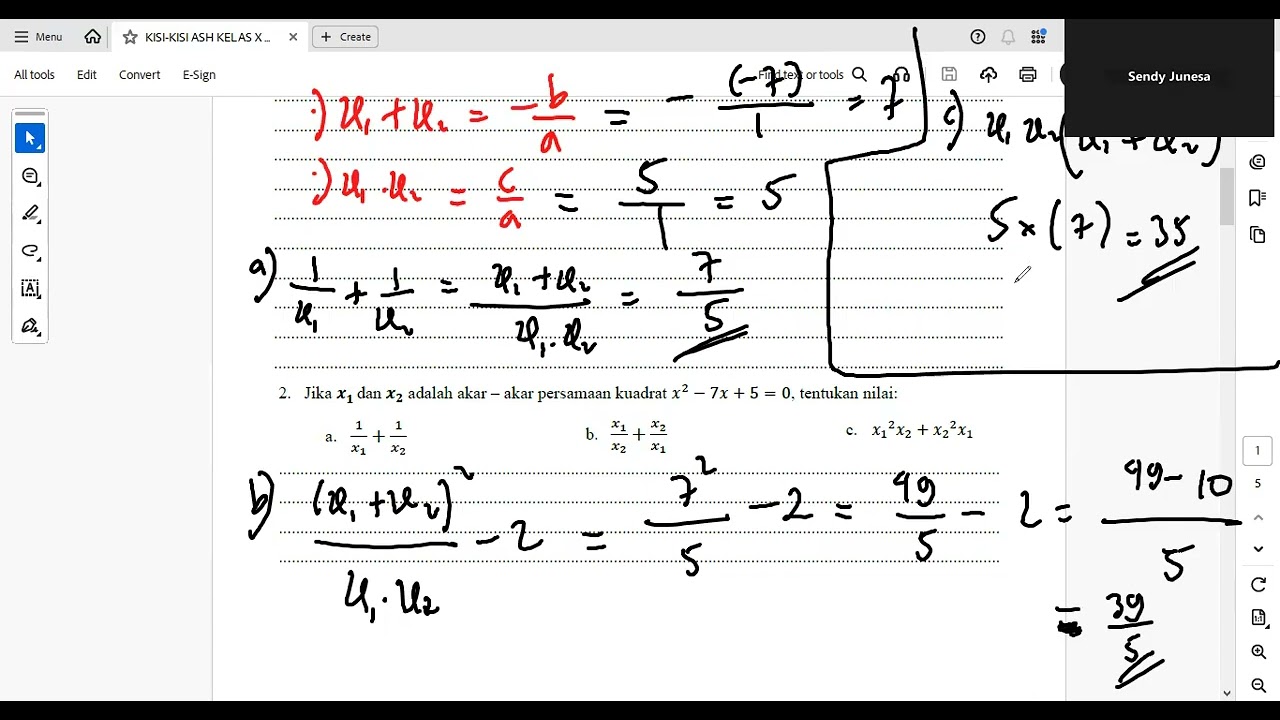 Menu
KISI-KISI ASH KELAS X ...
+ Create
All tools Edit Convert E-Sign
Find text or tools
Sendy Junesa
·) x₁ + x₂ = -b/a = -(-7)/1 = 7
·) x₁ · x₂ = c/a = 5/1 = 5
c) x₁ x₂ (x₁ + x₂)
5 × (7) = 35
a) 1/x₁ + 1/x₂ = (x₁ + x₂)/(x₁ · x₂) = 7/5
2. Jika x₁ dan x₂ adalah akar – akar persamaan kuadrat x² − 7x + 5 = 0, tentukan nilai:
a. 1/x₁ + 1/x₂ b. x₁/x₂ + x₂/x₁ c. x₁²x₂ + x₂²x₁
b) (x₁ + x₂)²/(x₁ · x₂) - 2 = 7²/5 - 2 = 49/5 - 2 = (49 - 10)/5
= 39/5
1
5